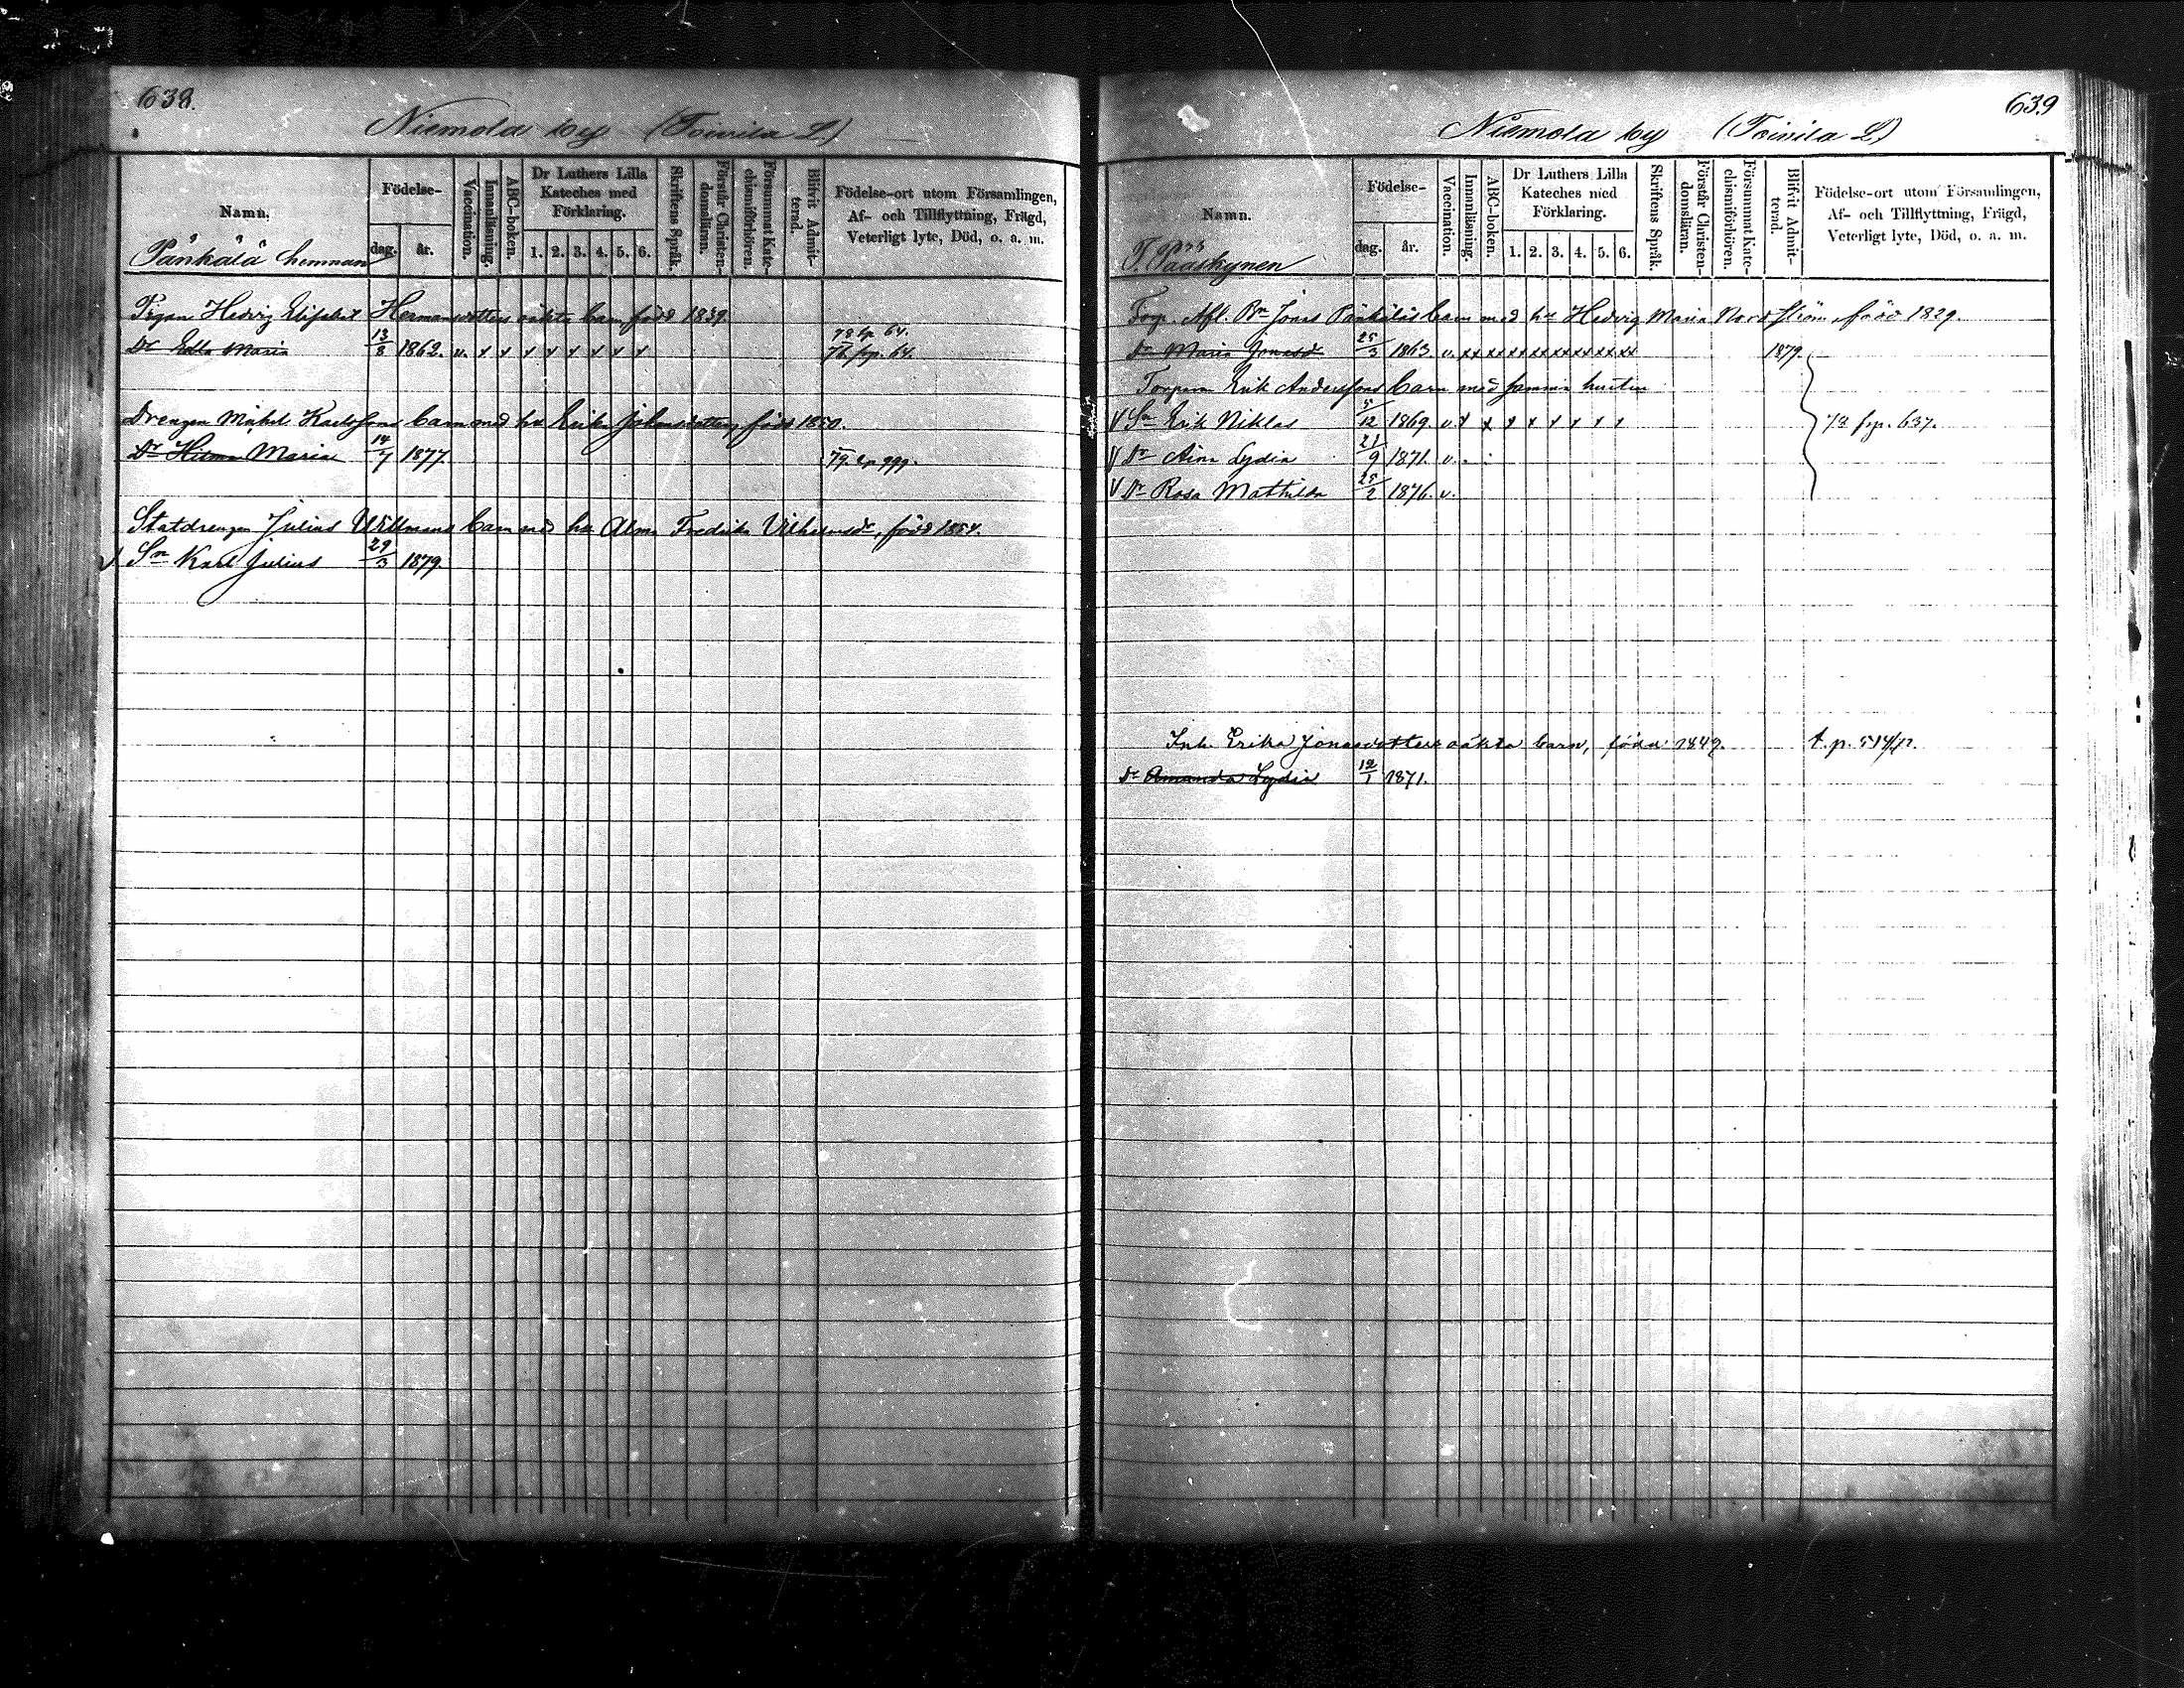 638.
Niemola by (Toivila L)
Namn.
Födelse-
dag.
år.
Vaccination.
Innanläsning.
ABC-boken.
Dr Luthers Lilla
Kateches med
Förklaring.
1. 2. 3. 4. 5. 6.
Skriftens Språk.
Förstår Christen-
domsläran.
Försummat Kate-
chismiförhören.
Blifvit Admit-
terad.
Födelse-ort utom Församlingen,
Af- och Tillflyttning, Frägd,
Veterligt lyte, Död, o. a. m.
Pänkälä hemman
Pigan Hedvig Elisabet Hermansdotters oäkta barn född 1839.
78 fp. 64.
Dr Edla Maria 13/8 1862. v. x x x x x x x x
Drengen Mickel Karlssons barn med hu Erika Johansdotter, född 1850.
Dr Hilma Maria 14/7 1877.
Statdrengen Julius Willmans barn med hu Alma Fredrika Vilhelmsdr, född 1854.
Sn Karl Julius 29/3 1879.
639
Niemola by (Toivila L)
Namn.
Födelse-
dag.
år.
Vaccination.
Innanläsning.
ABC-boken.
Dr Luthers Lilla
Kateches med
Förklaring.
1. 2. 3. 4. 5. 6.
Skriftens Språk.
Förstår Christen-
domsläran.
Försummat Kate-
chismiförhören.
Blifvit Admit-
terad.
Födelse-ort utom Församlingen,
Af- och Tillflyttning, Frägd,
Veterligt lyte, Död, o. a. m.
T. Pääskynen
Torp. Afl. Bn Jonas Pänkäläs barn med hu Hedvig Maria Nordström, född 1829.
Dr Maria Jonasdr 25/3 1863. v. xx xx xx xx xx xx xx xx 1879.
Torparen Erik Anderssons barn med samma hustru
V Sn Erik Niklas 5/12 1869. v. x x x x x x x x 78 frp. 637.
V Dr Aina Lydia 21/9 1871. v.
V Dr Rosa Mathilda 25/2 1876. v.
Inh. Erika Jonasdotters oäkta barn, född 1849. t. p. 514/12.
Dr Amanda Lydia 12/1 1871.